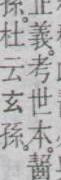 正義。考世本。齧
孫。杜云玄孫。